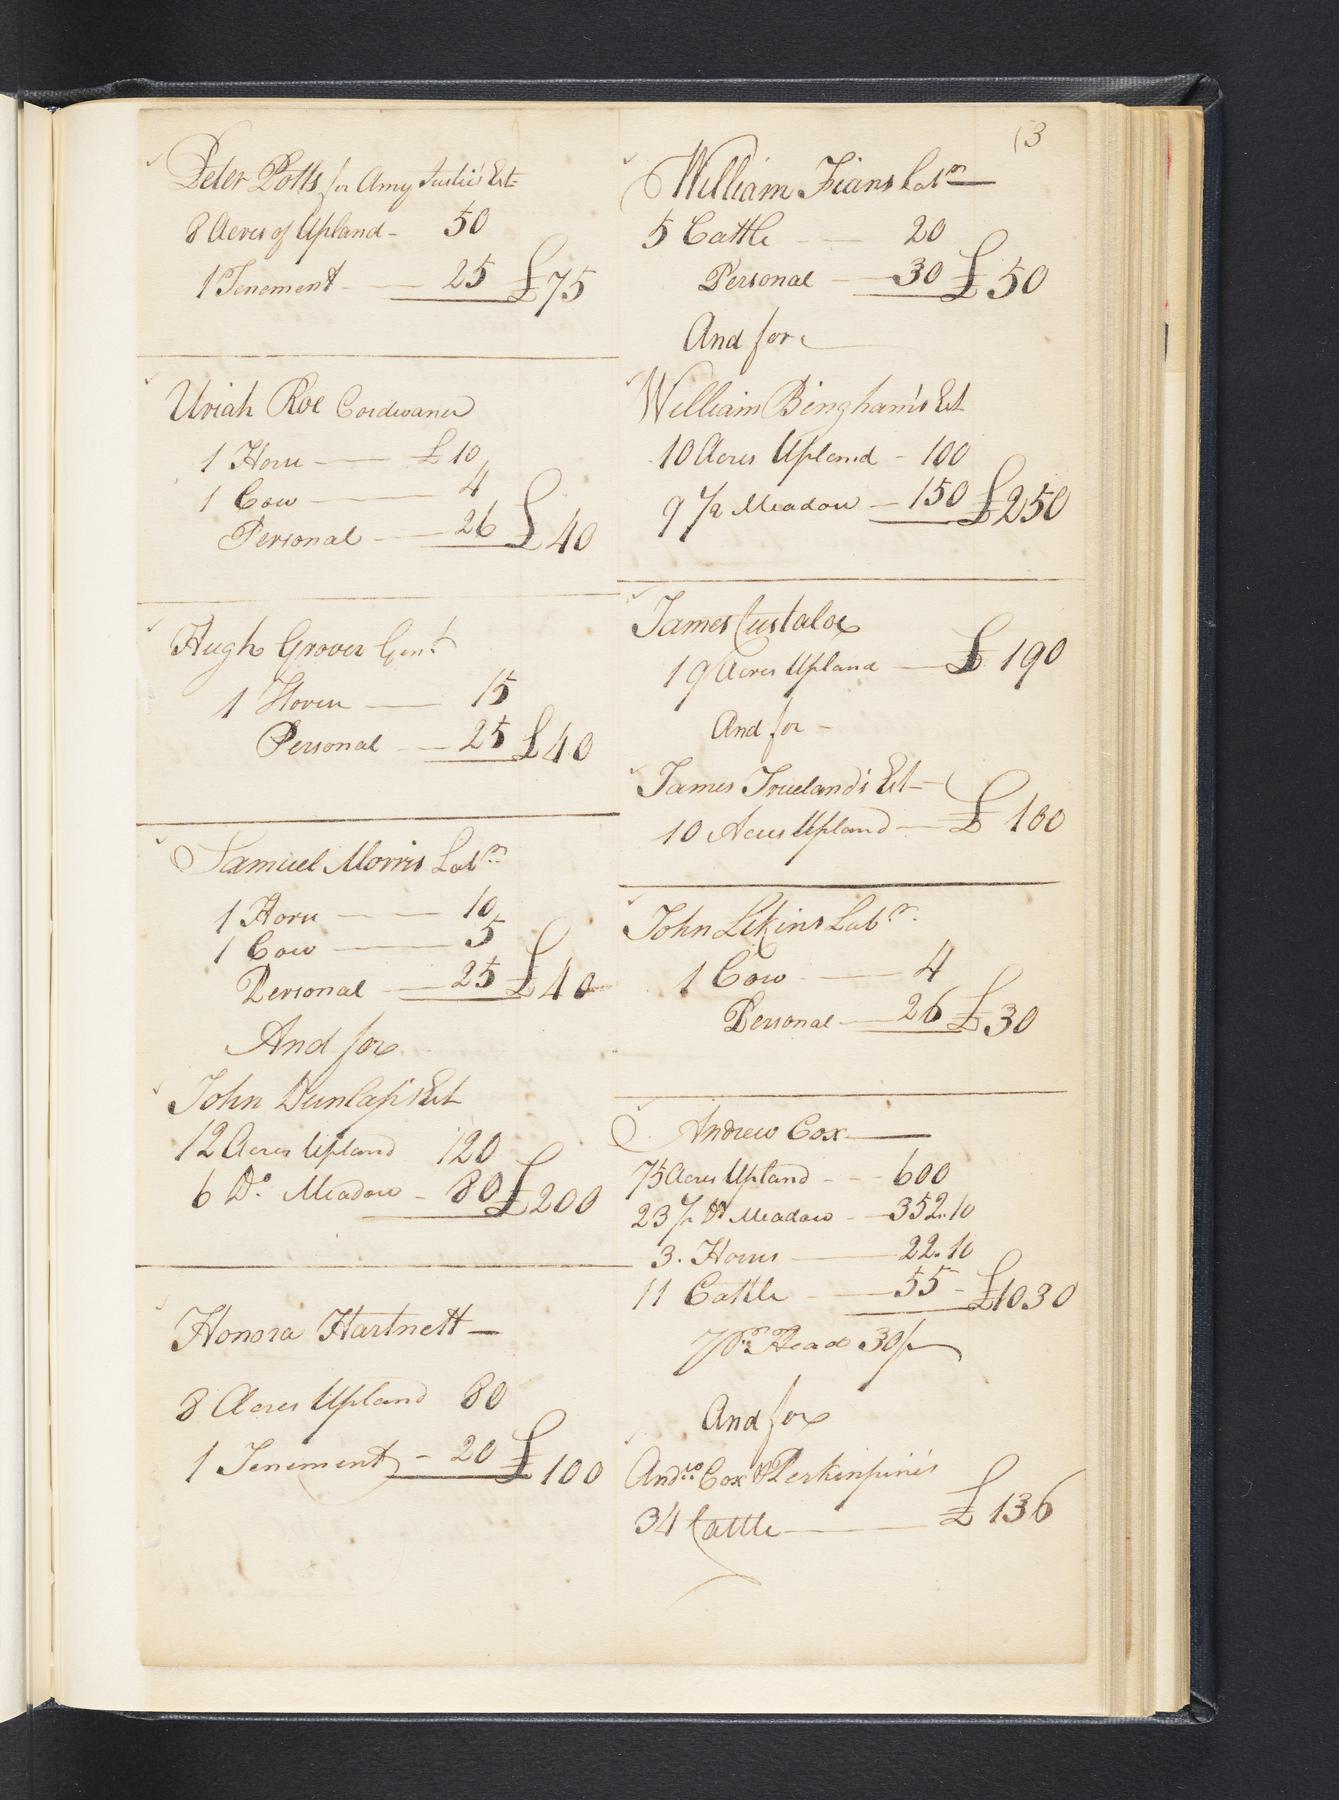 (3
Peter Potts for Amy Justis's Est
8 Acres of Upland - 50
1 Tenement - 25 £75
Uriah Roe Cordwaner
1 Horse - £10
1 Cow - 4
Personal - 26 £40
Hugh Grover Gent
1 Horse - 15
Personal - 25 £40
Samuel Morris Labr
1 Horse - 10
1 Cow - 5
Personal - 25 £40
And for
John Dunlap's Est
12 Acres Upland 120
6 Do. Meadow - 80 £200
Honora Hartnett
8 Acres Upland 80
1 Tenement - 20 £100
William Labr
5 Cattle - 20
Personal - 30 £50
And for
William Bingham's Est
10 Acres Upland - 100
9 1/2 Meadow - 150 £250
James Custaloe
19 Acres Upland - £190
And for -
James Trueland's Est
10 Acres Upland - £100
John Likins Labr.
1 Cow - 4
Personal - 26 £30
Andrew Cox
75 Acres Upland - 600
23 1/2 Do Meadow - 352.10
3. Horses - 22.10
11 Cattle - 55 - £1030
Head 30/
And for
Andw Cox & Perkinpine's
34 Cattle - £136